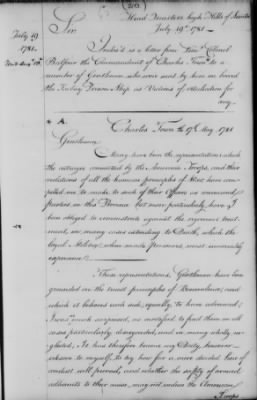 203
Head Quarters high Hills of Santee
July 19th 1781.
July 19.
1781.
Sir,
Inclos'd is a letter from Lieut. Colonel
Balfour the Commandant of Charles Town to a
number of Gentlemen who were sent by him on board
the Prison Ships as Victims of retaliation for
any
A.
Charles Town the 17th May 1781
Gentlemen
Many have been the representations which
the outrages committed by the American Troops, and their
violations of all the humane principles of War have com-
pelled me to make to such of their Officers as commanded
parties in this Province but more particularly, have I
been obliged to remonstrate against the rigorous treat-
ment, in many cases extending to Death, which the
loyal Militia when made prisoners, most invariably
experience.
These representations, Gentlemen have been
grounded on the truest principles of Benevolence, and
which it behoves each side, equally, to have advanced;
I was, much surprised, as mortified to find them in all
cases particularly disregarded, and in many wholly ne-
glected; It has therefore become my Duty, however
irksome to myself, to try how far a more decided line of
conduct will prevail, and whether the safety of avowed
adherents to their cause, may not induce the American
Troops